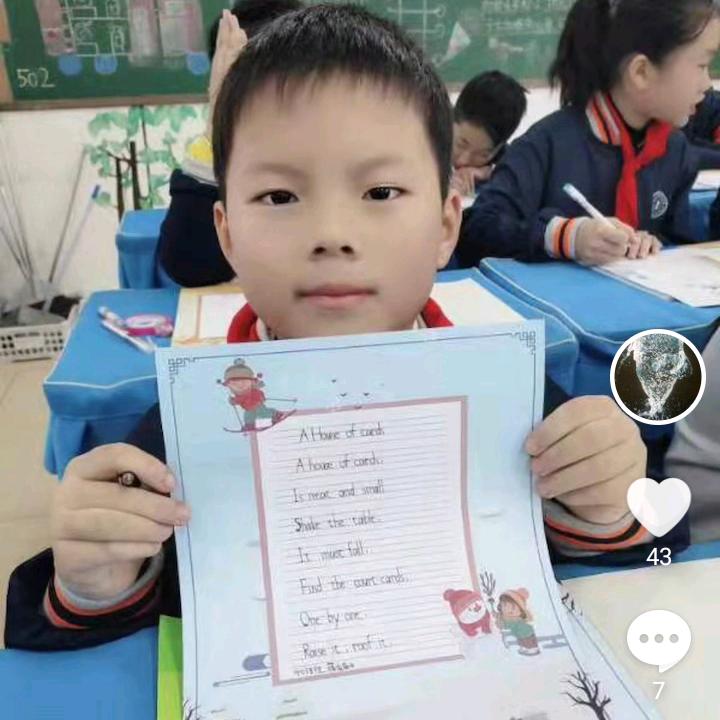 502
A House of cards
A house of cards.
Is neat and small
Shake the table.
It must fall.
Find the court cards.
One by one.
Raise it, roof it.
43
7